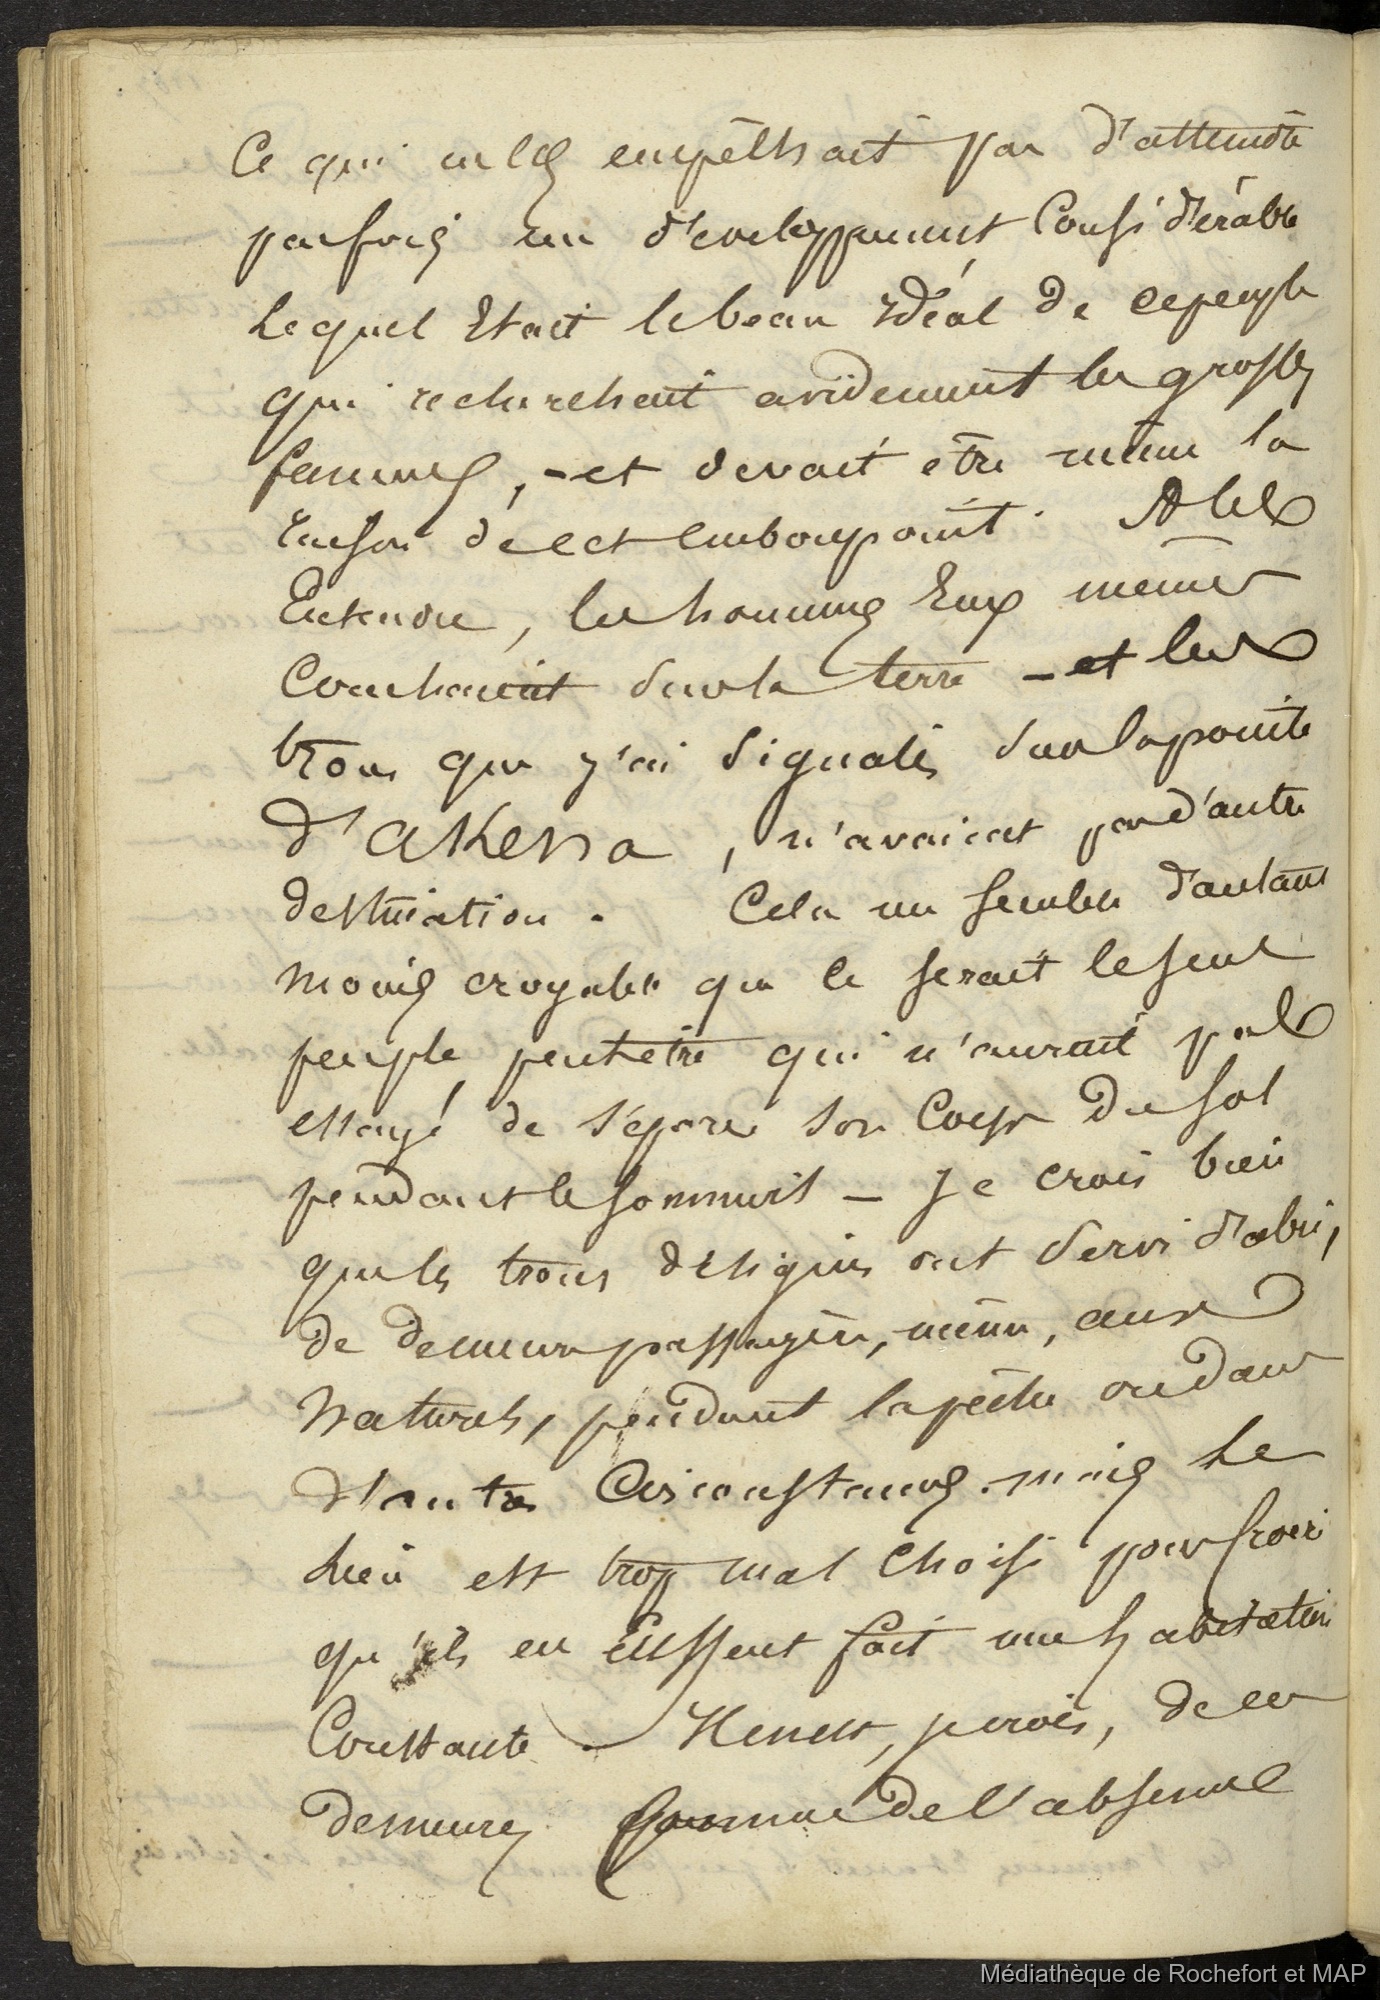 Ce qui ne les empêchait pas d'atteindre
parfois un développement Considérable
Lequel Etait le beau idéal de ce peuple
qui recherchait avidement les grosses
femmes, - et devait être même la
raison de cet embonpoint. A les
Entendre, les hommes Eux mêmes
Couchaient sur la terre - et les
trous que j'ai signalés sur la pointe
d'akena, n'avaient pas d'autre
destination. Cela me semble d'autant
moins croyable que ce serait le seul
peuple peut être qui n'aurait pas
essayé de séparer son Corps du sol
pendant le sommeil - Je crois bien
que les trous désignés ont servi d'abri,
de demeure passagère, même, aux
Naturels, pendant la pêche ou dans
d'autres Circonstances. mais Le
Lieu est trop mal Choisi pour
qu'ils en Eussent fait une habitation
Constante. Il en est, je crois, de ces
demeures comme de l'absence
Médiathèque de Rochefort et MAP